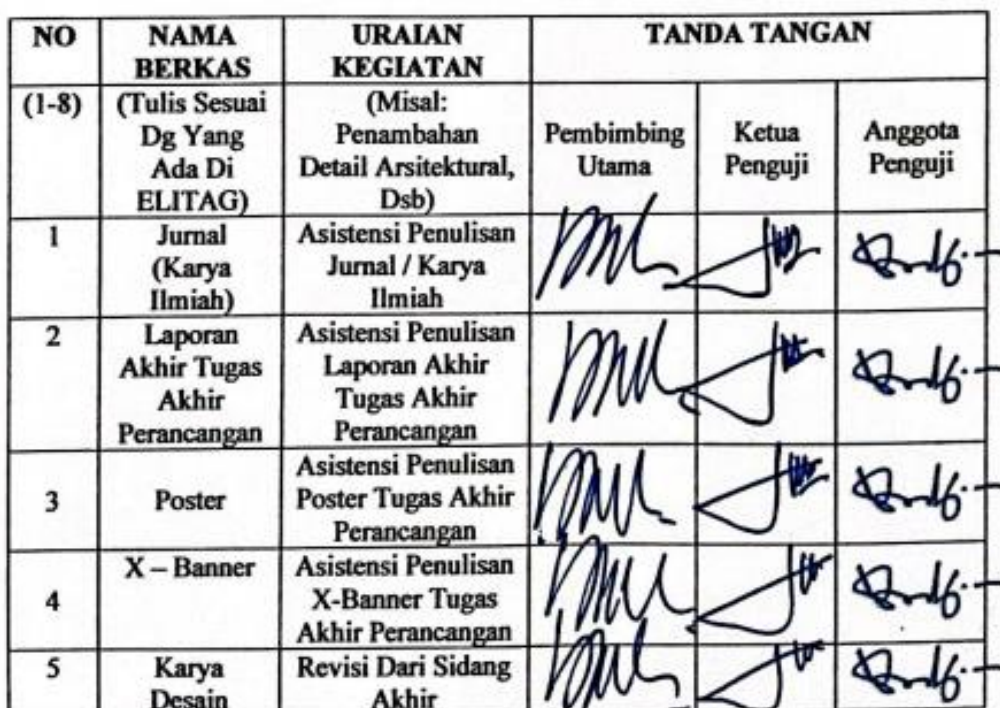 NO
NAMA
BERKAS
URAIAN
KEGIATAN
TANDA TANGAN
(1-8)
(Tulis Sesuai
Dg Yang
Ada Di
ELITAG)
(Misal:
Penambahan
Detail Arsitektural,
Dsb)
Pembimbing
Utama
Ketua
Penguji
Anggota
Penguji
1
Jurnal
(Karya
Ilmiah)
Asistensi Penulisan
Jurnal / Karya
Ilmiah
2
Laporan
Akhir Tugas
Akhir
Perancangan
Asistensi Penulisan
Laporan Akhir
Tugas Akhir
Perancangan
3
Poster
Asistensi Penulisan
Poster Tugas Akhir
Perancangan
4
X – Banner
Asistensi Penulisan
X-Banner Tugas
Akhir Perancangan
5
Karya
Desain
Revisi Dari Sidang
Akhir